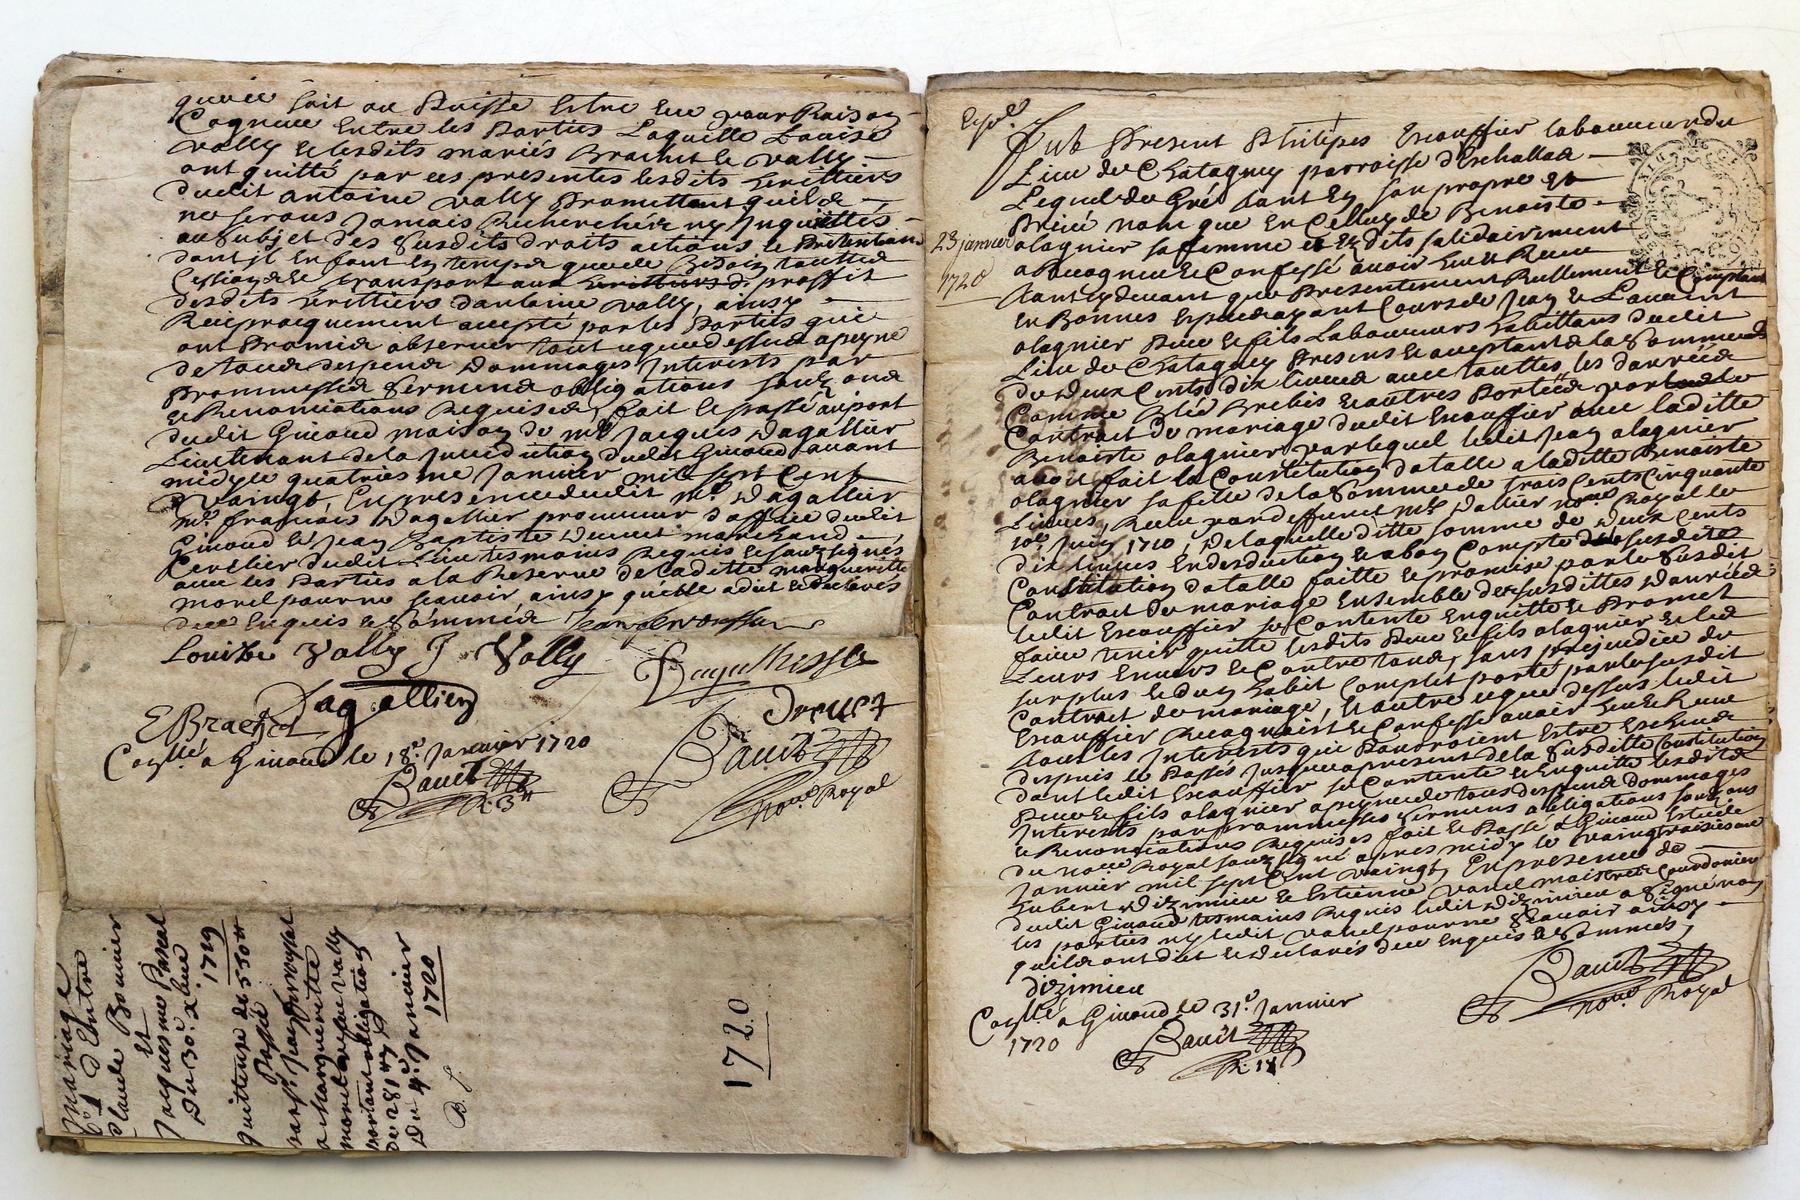 quice soit ou Puisse Estre Eue pour Raison
Cognuee Entre les Parties Laquelle Louise
Vally et lesdits mariés Brachet et Vally
ont quitté par ces presentes lesdits heritiers
dudit antoine Vally Promettant quils
ne serons Jamais Recherchés ny Inquiettés
au Subjet des Susdits droits actions et Pretentions
dont ils En font En temps que de Besoin touttes
Cession et transport aux heritiers du proffit
desdits heritiers dantoine Vally, ainsy
Reciproquement accepté par les Parties qui
ont Promis observer tout ce que dessus a peyne
de tous despens dommages Interests par
Prommesses Serments obligations
et Renonciations Requises, fait et passé au port
dudit Givord maison de mr Jacques Dagallier
Lieutenant de la Jurediction dudit Givord avant
midy le quatriesme Janvier mil sept Cent
Vaingt, En presence dudit mr Dagallier
mr francois Dagallier procureur d'office dudit
Givord et Jean Baptiste Drevet marchand
dudit Lieu tesmoins Requis et souzsignés
avec les Parties a la Reserve de laditte margueritte
morel pour ne scavoir ainsy quelle a dit et declaré
deue Enquis et Sommée
Louize Vally J Vally
Dagallier
E Brachet
Drevet
Conllé a Givord le 18e Janvier 1720
Bauit
R. 3#
Bauit
nore Royal
mariage
d'Entre
Claude Bonnier
Et
Jacquesme Pascal
Du 30e xbre
1719
quittence de 550#
Passée
par sr Jean
a Marguerite
morel veuve Vally
portant obligation
de 281#
Du 4e Janvier
1720
1720
Expé
23 janvier
1720
Fut Present Philipes Escouffier laboureur du
Lieu de Chatagney parroisse d'Eschallas
Lequel de Gré tant En son propre et
Privé nom que En Celluy de Benoiste
olagnier sa femme et Eydits solidairement
a Recogneu et Confessé avoir Eu et Receu
tant cy devant que Presentement Reellement et Comptant
En Bonnes Especes ayant Cours de Jean et Laurent
olagnier Pere et fils Laboureurs habittans dudit
Lieu de Chatagney Presens et acceptant la Somme
de deux Cents dix livres avec touttes les danrées
Comme Blé Brebis et autres Portées par
Contract de mariage dudit Escouffier avec laditte
Benoiste olagnier par lequel ledit Jean olagnier
avoit fait la Constitution dotalle a laditte Benoiste
olagnier sa fille de la Somme de trois Cents Cinquante
Livres, Receu par deffunct mr Dallier nore Royal le
10e Juin 1710, de laquelle ditte somme de deux Cents
dix livres En desduction et a bon Compte de susdite
Constitution dotalle faitte et promise par le Susdit
Contract de mariage Ensemble de susdittes danrées
ledit Escouffier se Contente Enquitte et Promet
faire tenir quitte lesdits Pere et fils olagnier et les
Leurs Envers et Contre tous, sans prejudice du
surplus et d'un habit Complit porté par le susdit
Contract de mariage, et outre ce que dessus ledit
Escouffier Recognoist et Confesse avoir Eu et Receu
tous les Interests qui Pouroient Estre
despuis le Passé Jusques a present de la Susditte Constitution
dont ledit Escouffier se Contente et Enquitte lesdits
Pere et fils olagnier a peyne de tous despens dommages
Interests par prommesses serments obligations
et Renonciations Requises fait et Passé a Givord Estude
du nore Royal souzsigné apres midy le Vaingtroisiesme
Janvier mil sept Cent Vaingt, En presence de
hubert Dizimieu et Estienne Vanel maistre Courdonier
dudit Givord tesmoins Requis ledit Dizimieu a Signé non
les parties ny ledit Vanel pour ne Scavoir ainsy
quils ont dit et declarés deue Enquis et Sommés,
dizimieu
Bauit
nore Royal
Conllé a Givord le 31e Janvier
1720
Bauit